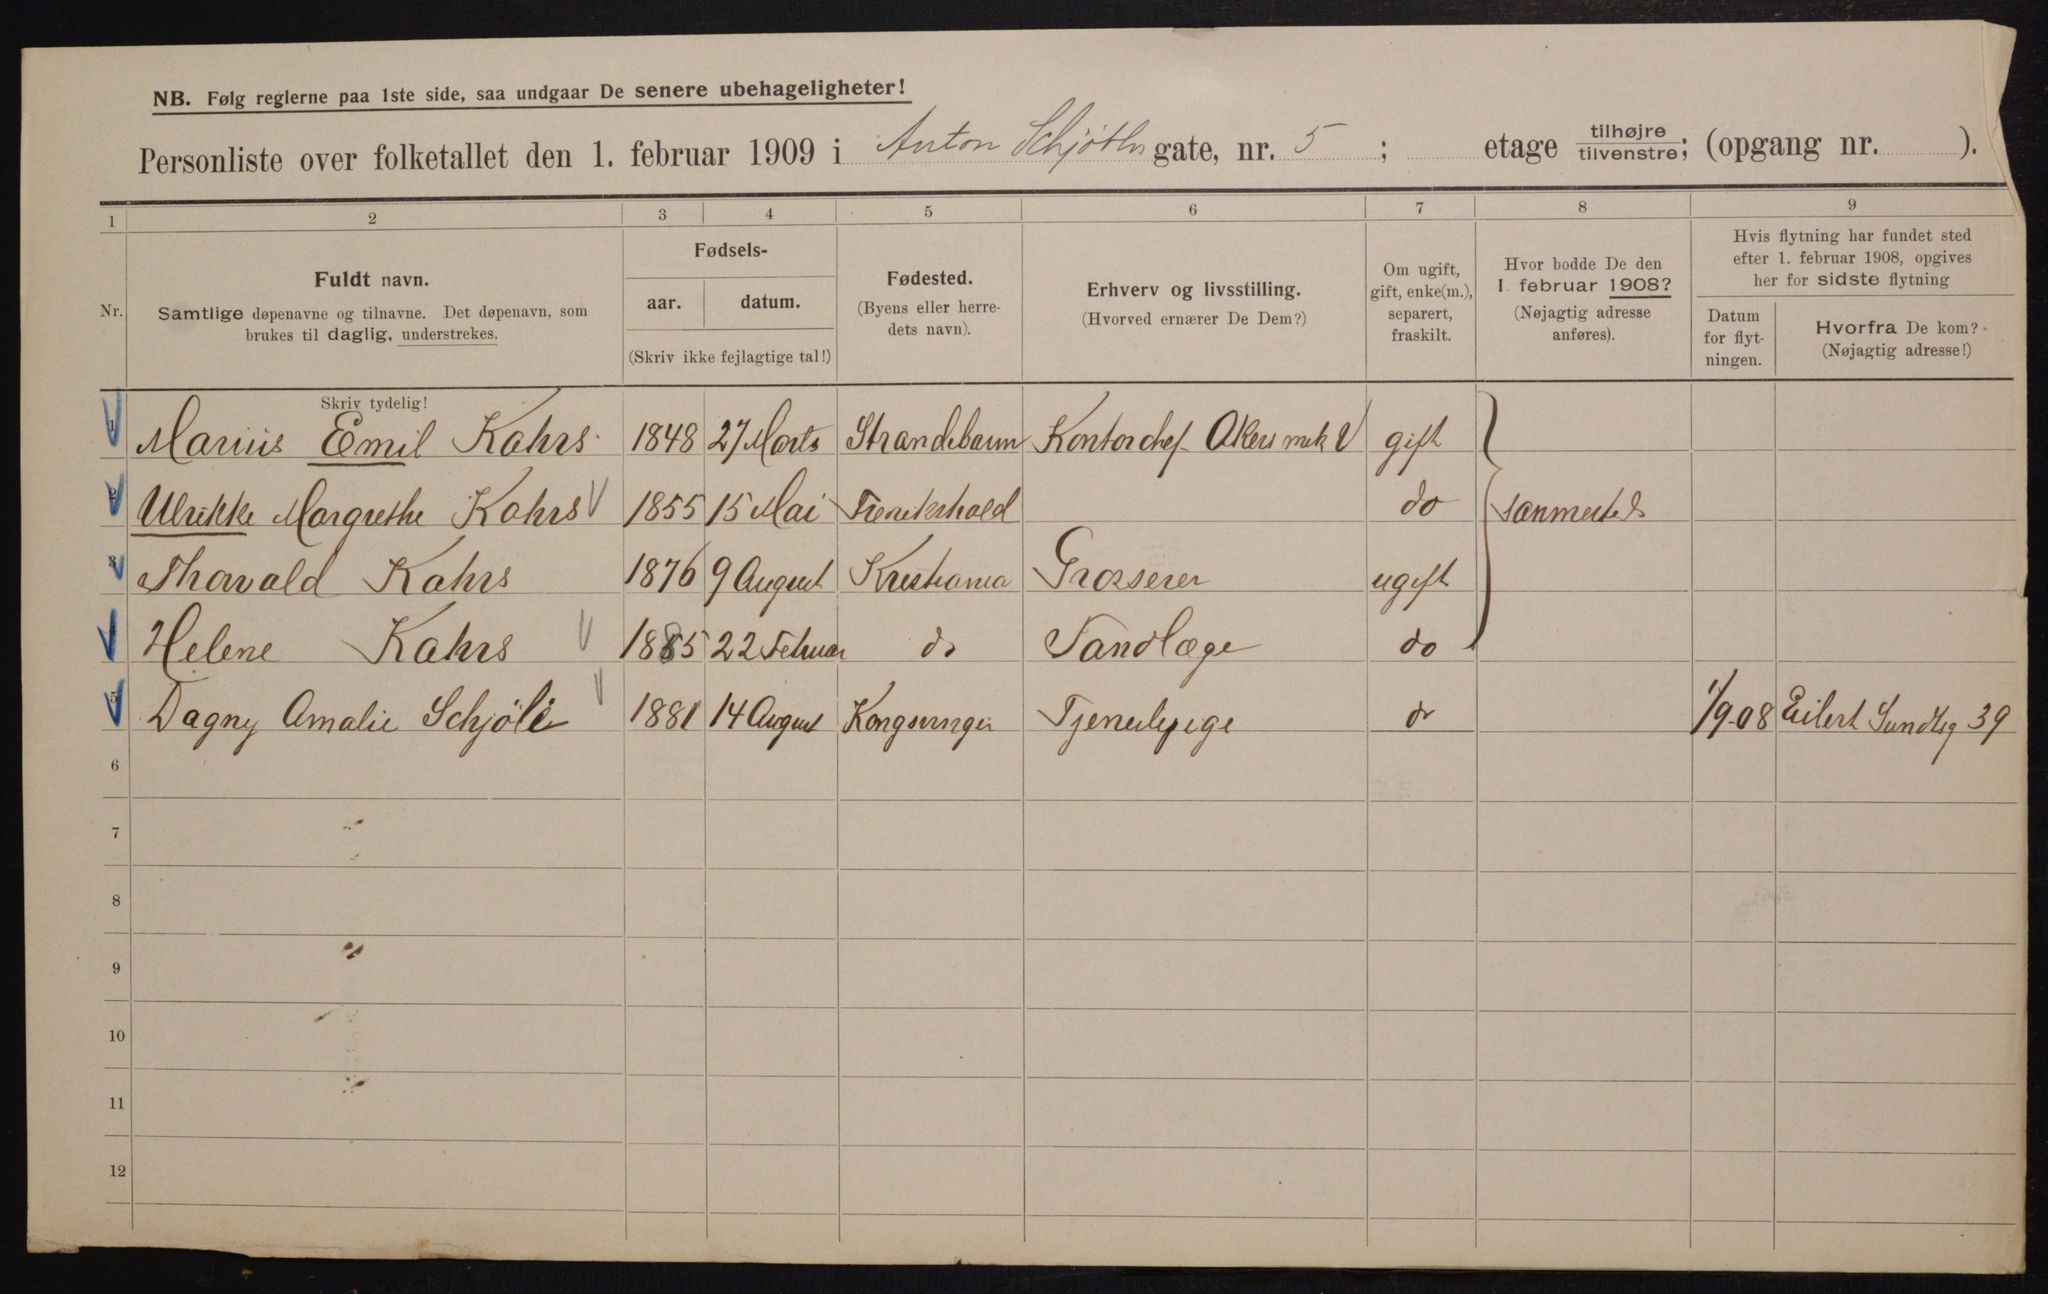 NB. Følg reglerne paa 1ste side, saa undgaar De senere ubehageligheter!
Personliste over folketallet den 1. februar 1909 i Anton Schjøths gate, nr. 5 ; etage tilhøjre tilvenstre; (opgang nr. ).
1 2 3 4 5 6 7 8 9
Nr.
Fuldt navn.
Samtlige døpenavne og tilnavne. Det døpenavn, som
brukes til daglig, understrekes.
Skriv tydelig!
Fødsels-
aar. datum.
(Skriv ikke fejlagtige tal!)
Fødested.
(Byens eller herre-
dets navn).
Erhverv og livsstilling.
(Hvorved ernærer De Dem?)
Om ugift,
gift, enke(m.),
separert,
fraskilt.
Hvor bodde De den
1. februar 1908?
(Nøjagtig adresse
anføres).
Hvis flytning har fundet sted
efter 1. februar 1908, opgives
her for sidste flytning
Datum
for flyt-
ningen.
Hvorfra De kom?
(Nøjagtig adresse!)
1 Marius Emil Kahrs 1848 27 Marts Strandebarm Kontorchef Akers mek V gift
2 Ulrikke Margrethe Kahrs 1855 15 Mai Fredrikshald do sammested
3 Thorvald Kahrs 1876 9 August Kristiania Grosserer ugift
Helene Kahrs 1885 22 Februar do Tandlæge do
5 Dagny Amalie 1881 14 August Kongsvinger Tjenestepige do 1/9-08 Eilert Sundtsg 39
6
7
8
9
10
11
12